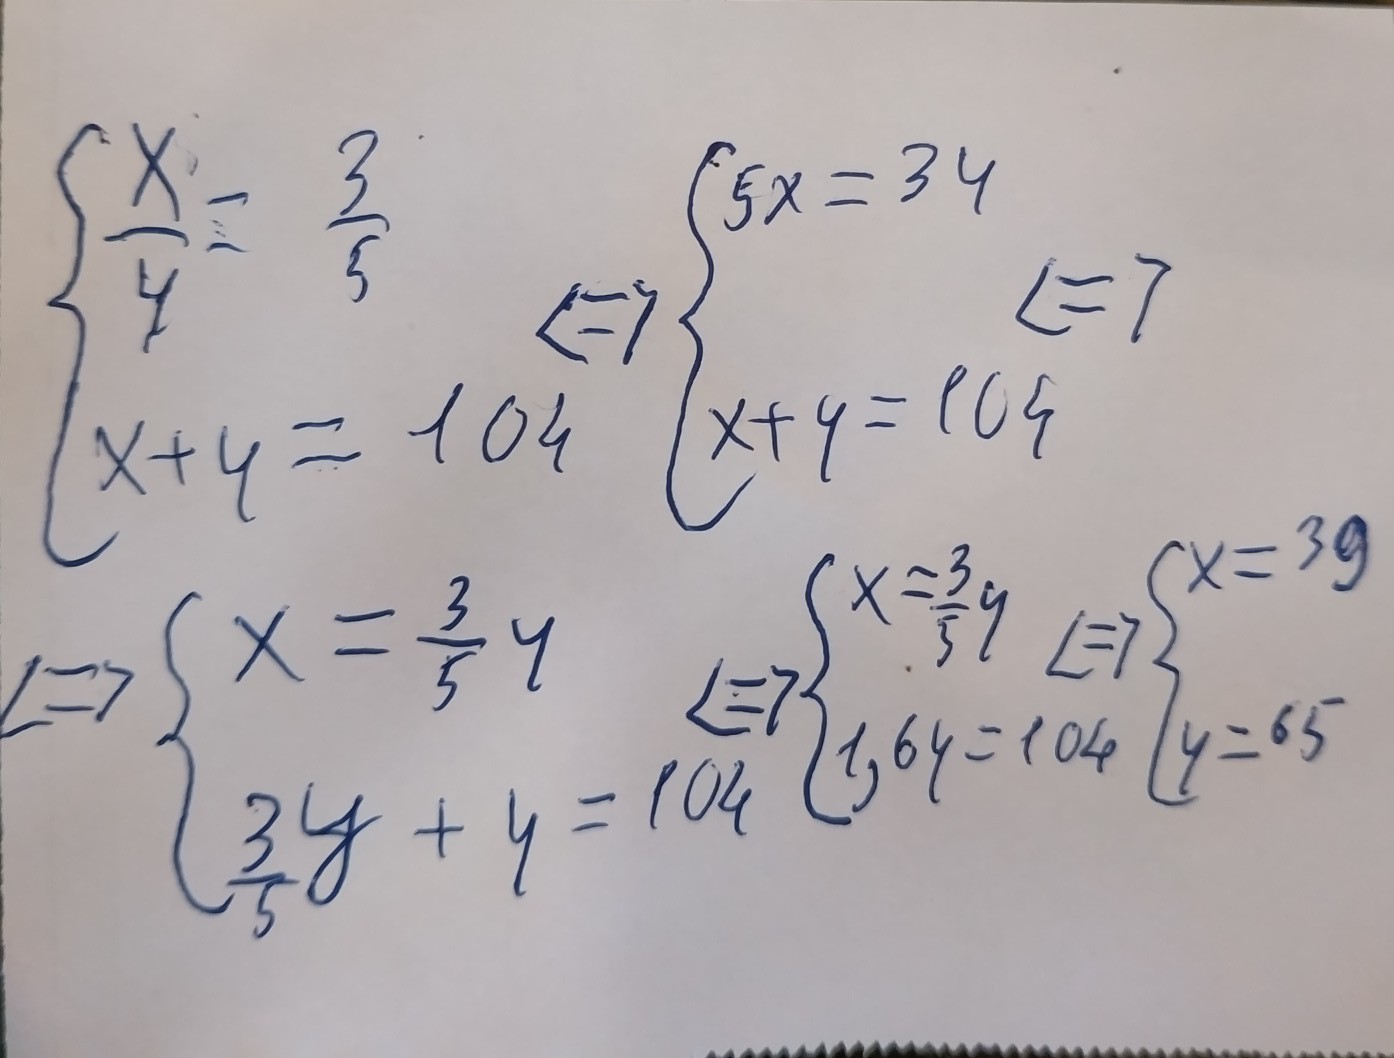 x/y = 3/5
x+y = 104
<=> 5x = 3y
x+y = 104 <=>
<=> x = 3/5 y
3/5 y + y = 104
<=> x = 3/5 y
1,6y = 104
<=> x = 39
y = 65